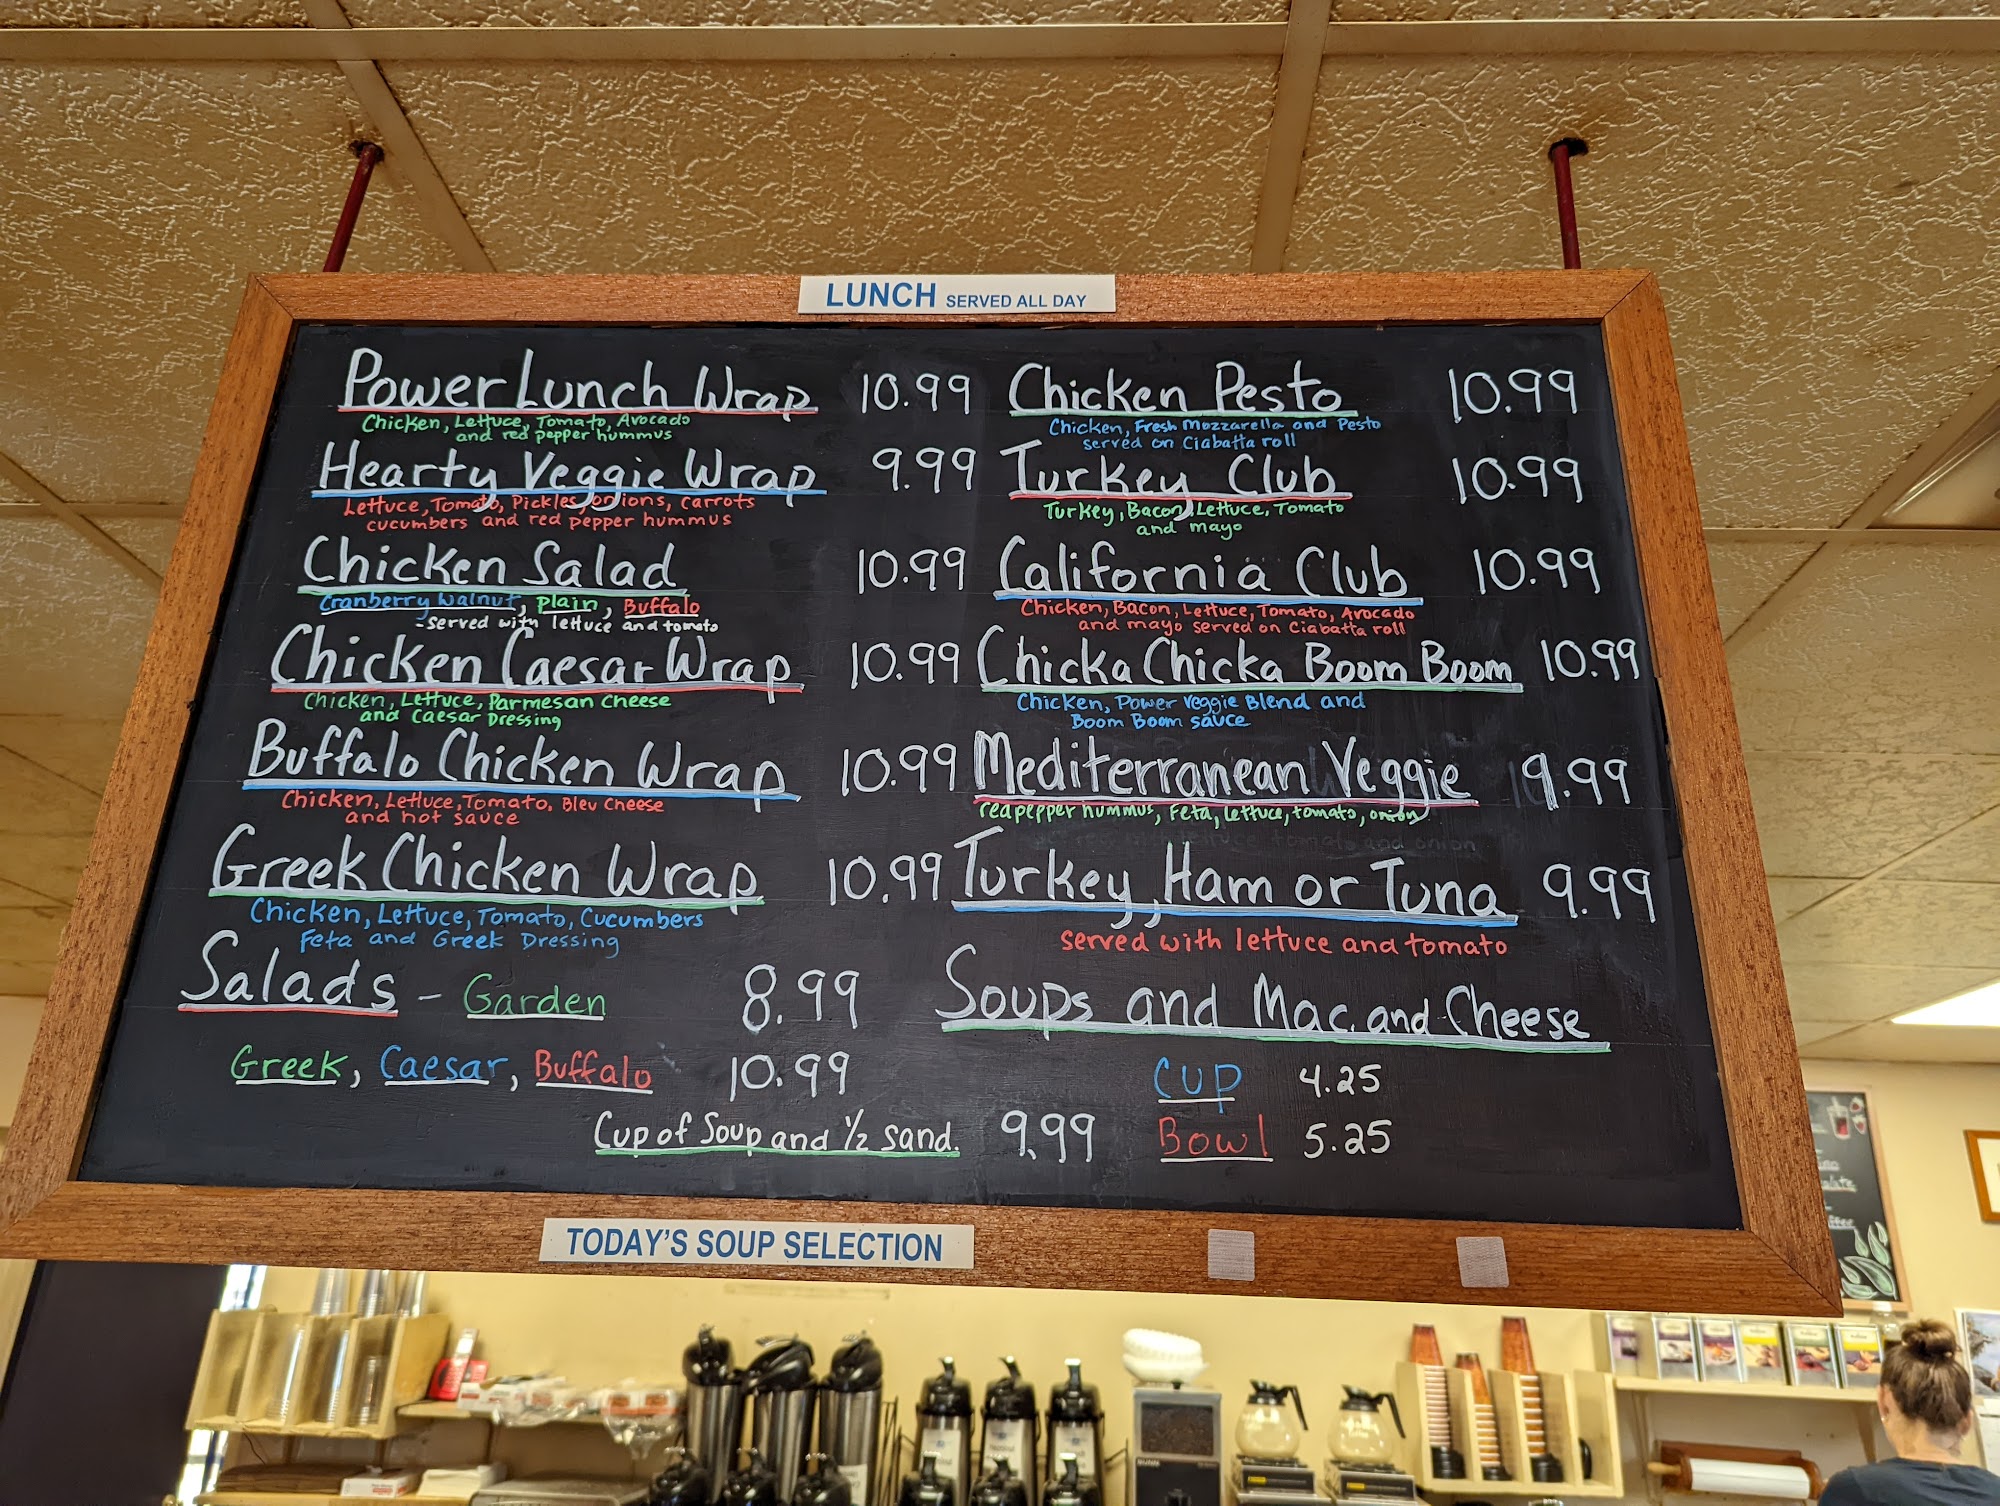 LUNCH SERVED ALL DAY
Power Lunch Wrap 10.99
Chicken, Lettuce, Tomato, Avocado
and red pepper hummus
Hearty Veggie Wrap 9.99
Lettuce, Tomato, Pickles, onions, carrots
cucumbers and red pepper hummus
Chicken Salad 10.99
Cranberry Walnut, Plain, Buffalo
-served with lettuce and tomato
Chicken Caesar Wrap 10.99
Chicken, Lettuce, Parmesan Cheese
and Caesar Dressing
Buffalo Chicken Wrap 10.99
Chicken, Lettuce, Tomato, Bleu Cheese
and hot sauce
Greek Chicken Wrap 10.99
Chicken, Lettuce, Tomato, Cucumbers
Feta and Greek Dressing
Salads - Garden 8.99
Greek, Caesar, Buffalo 10.99
Chicken Pesto 10.99
Chicken, Fresh Mozzarella and Pesto
served on Ciabatta roll
Turkey Club 10.99
Turkey, Bacon, Lettuce, Tomato
and mayo
California Club 10.99
Chicken, Bacon, Lettuce, Tomato, Avocado
and mayo served on Ciabatta roll
Chicka Chicka Boom Boom 10.99
Chicken, Power Veggie Blend and
Boom Boom sauce
Mediterranean Veggie 9.99
red pepper hummus, Feta, lettuce, tomato, onion
Turkey, Ham or Tuna 9.99
served with lettuce and tomato
Soups and Mac and Cheese
Cup 4.25
Bowl 5.25
Cup of Soup and 1/2 sand. 9.99
TODAY'S SOUP SELECTION
BUNN